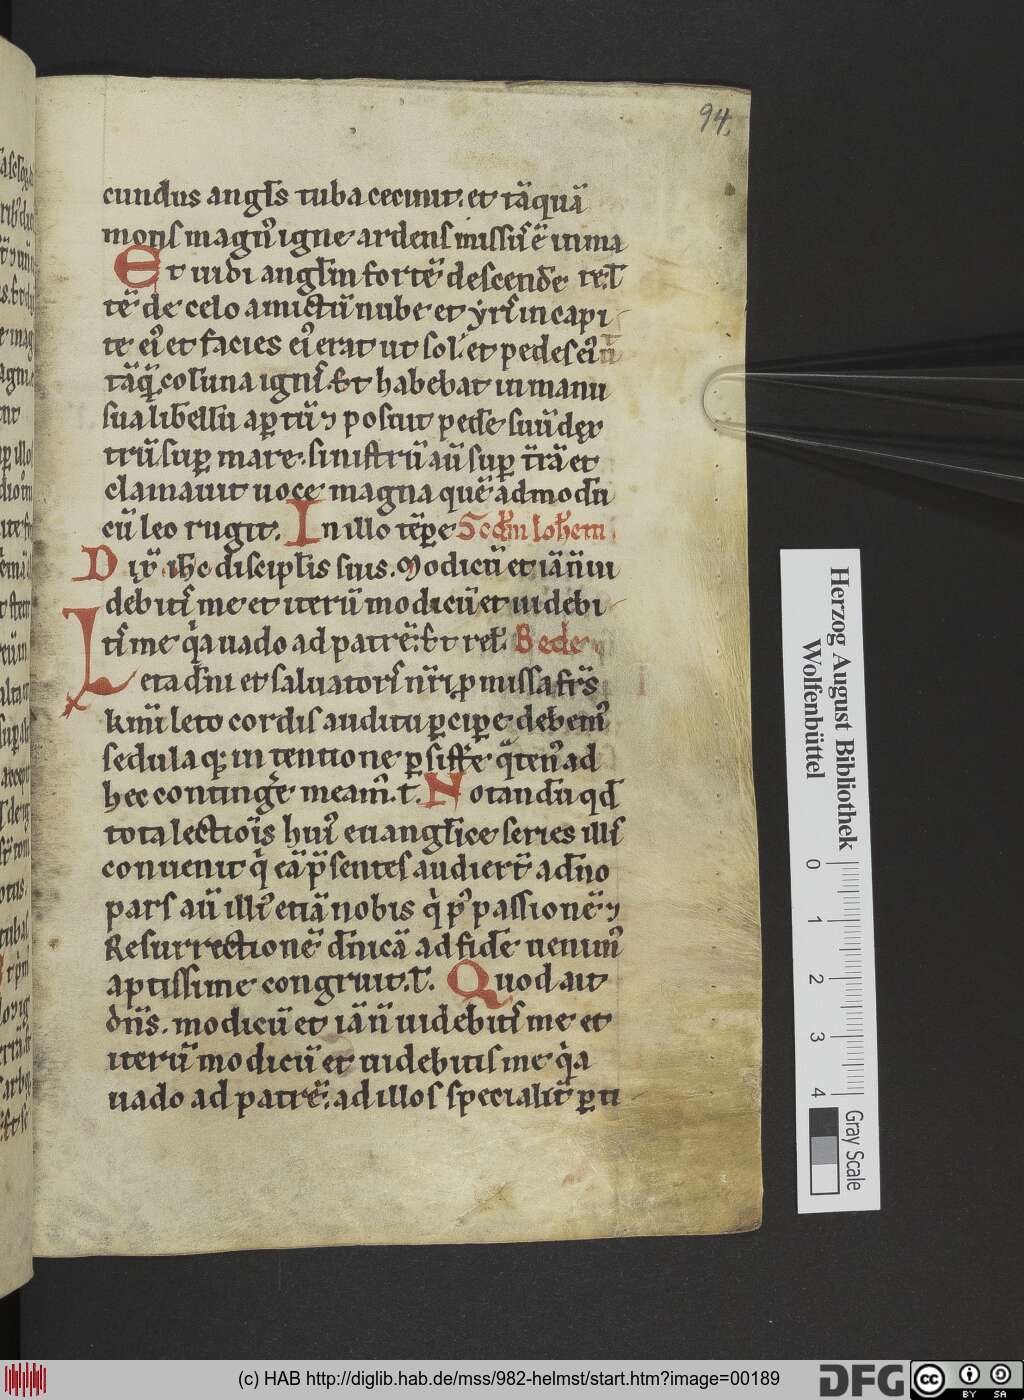 94.
cundus angl̄s tuba cecinit. et tāquā
mons magn᷒ igne ardens missus ē in ma
Et uidi angl̄m fortē descendē re. rel̄
tē de celo amictū nube et yris in capi
te ei᷒ et facies ei᷒ erat ut sol. et pedes ei᷒
tāq̄ coluna ignis. Et habebat in manu
sua libellū aꝑtū ⁊ posuit pedē suū dex
trū suꝑ mare. sinistrū aū suꝑ tr̄ā et
clamauit uoce magna quēadmodū
cū leo rugit. In illo tēꝑe Scd̄m Ioh̄em
Dix̄ ih̄c discipl̄is suis. Modicū et iā n̄ ui
debitis me et iterū modicū et uidebi
tis me q̄a uado ad patrē. Et rel̄. Bede
Leta dn̄i et saluatoris nr̄i ꝓmissa frs̄
km̄i leto cordis auditu ꝑcipe debem᷒
sedula q; intentione ꝑsistē q̄ten᷒ ad
hec contingē meam᷒. t̄. Notandū qd̄
tota lectiōis hui᷒ euangl̄ice series illis
conuenit q̄ eā p̄sentes audiert̄ a dn̄o
pars aū illi᷒ etiā nobis q̄ p᷒ passionē ⁊
Resurrectionē dn̄icā ad fidē uenim᷒
aptissime congruit. t̄. Quod ait
dn̄s. modicū et iā n̄ uidebitis me et
iterū modicū et uidebitis me q̄a
uado ad patrē. ad illos specialit̄ ꝑti
Herzog August Bibliothek
Wolfenbüttel
0 1 2 3 4
Gray Scale
(c) HAB http://diglib.hab.de/mss/982-helmst/start.htm?image=00189
DFG
cc BY SA